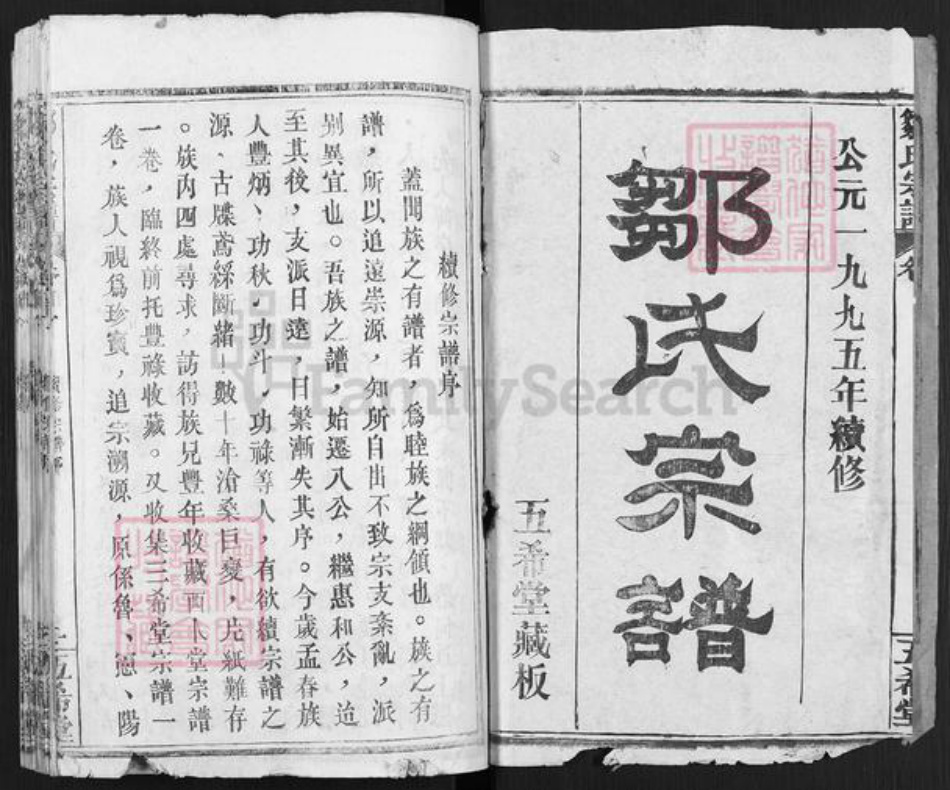 公元一九九五年續修
鄒氏宗譜
五希堂藏板
續修宗譜序
蓋聞族之有譜者，爲睦族之綱領也。族之有
譜，所以追遠崇源，知所自出不致宗支紊亂，派
别異宜也。吾族之譜，始遷八公，繼惠和公，迨
至其後，支派日遠，日繁漸失其序。今歲孟春族
人豐炳、功秋，功斗，功祿等人，有欲續宗譜之
源、古牒鳶綵斷緒，數十年滄桑巨變，片紙難存
。族内四處尋求，訪得族兄豐年收藏西人堂宗譜
一卷，臨終前托豐祿收藏。及收集三希堂宗譜一
卷，族人視爲珍寶，追宗溯源，原係魯、、陽
五希堂
鄒氏宗譜
卷
五希堂
FamilySearch